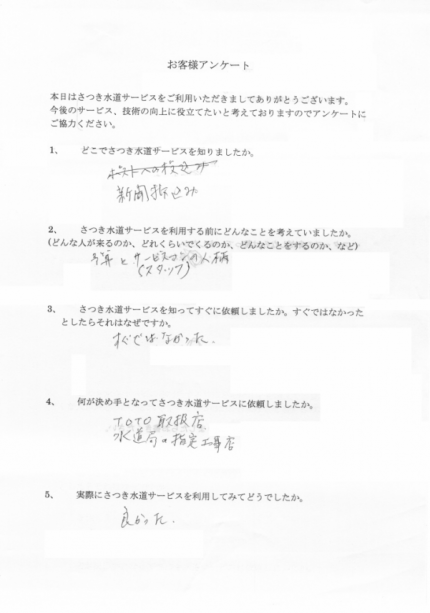 お客様アンケート
本日はさつき水道サービスをご利用いただきましてありがとうございます。
今後のサービス、技術の向上に役立てたいと考えておりますのでアンケートに
ご協力ください。
1、 どこでさつき水道サービスを知りましたか。
ポストへの投込み
新聞折込み
2、 さつき水道サービスを利用する前にどんなことを考えていましたか。
(どんな人が来るのか、どれくらいでくるのか、どんなことをするのか、など)
予算とサービスマンの人柄
(スタッフ)
3、 さつき水道サービスを知ってすぐに依頼しましたか。すぐではなかった
としたらそれはなぜですか。
すぐではなかった.
4、 何が決め手となってさつき水道サービスに依頼しましたか。
TOTO取扱店
水道局の指定工事店
5、 実際にさつき水道サービスを利用してみてどうでしたか。
良かった.